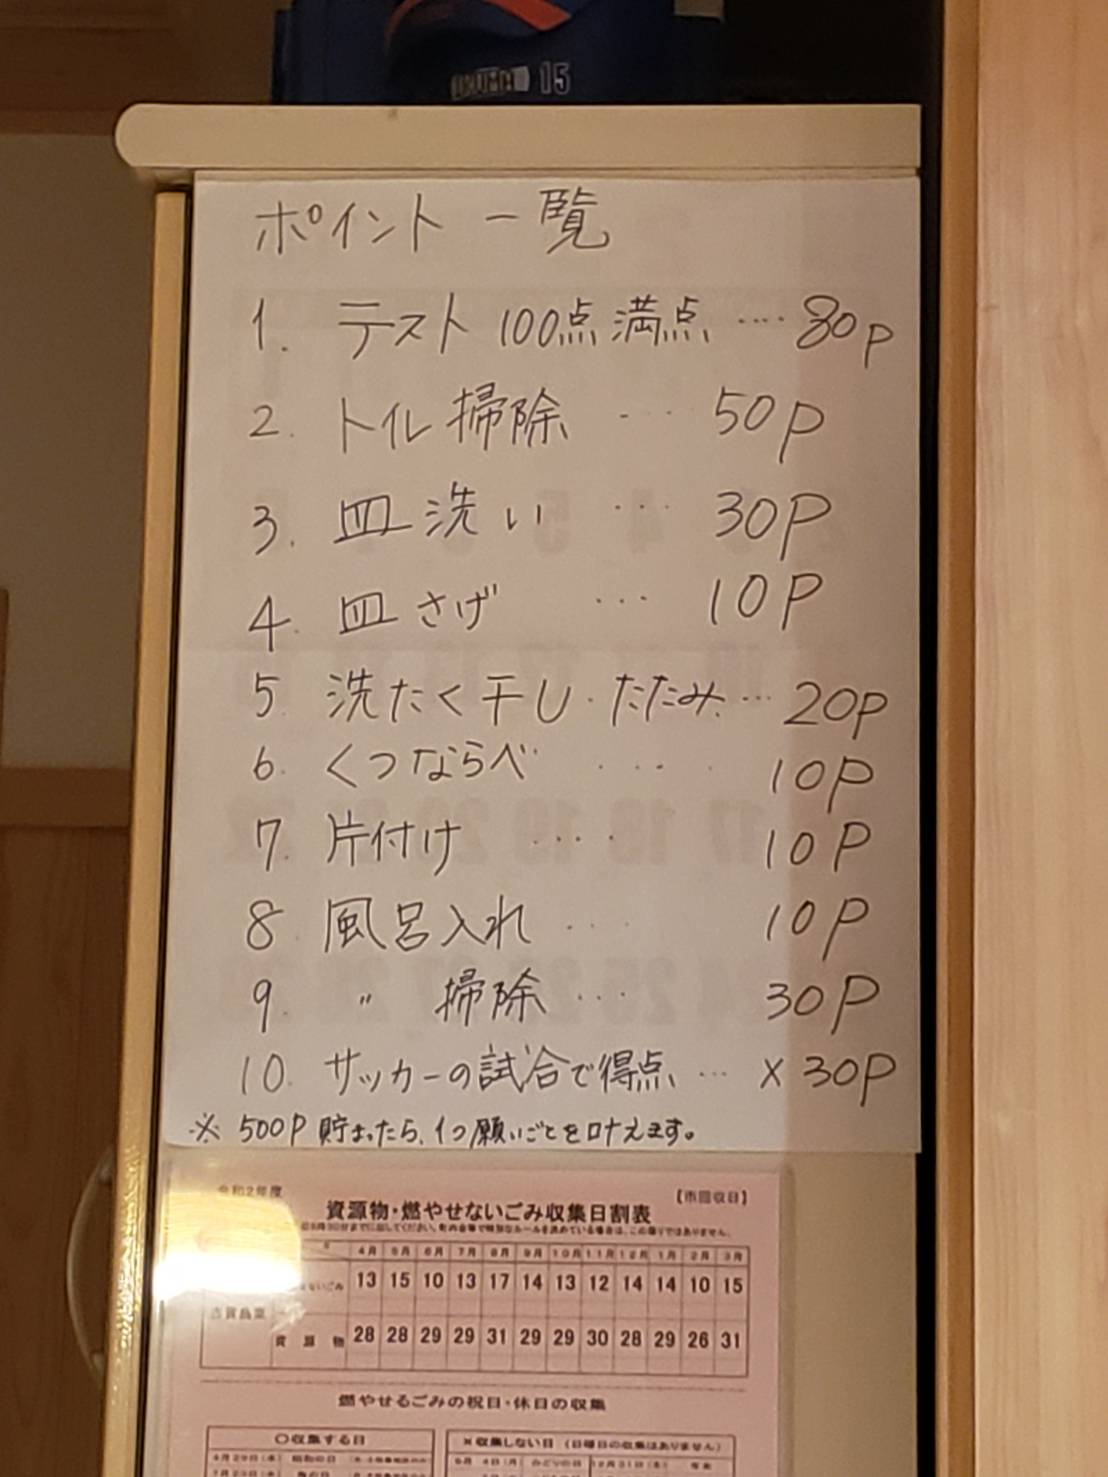 15
ポイント一覧
1. テスト 100点満点 ‥‥ 80p
2. トイレ掃除 ‥‥ 50p
3. 皿洗い … 30P
4. 皿さげ … 10P
5 洗たく干し・たたみ … 20p
6. くつならべ ‥‥ 10p
7. 片付け ‥‥ 10P
8 風呂入れ … 10P
9. 〃 掃除 … 30P
10. サッカーの試合で得点 … × 30P
※ 500P 貯まったら、1つ願いごとを叶えます。
令和2年度 【市回収日】
資源物・燃やせないごみ収集日割表
4月 5月 6月 7月 8月 9月 10月 11月 12月 1月 2月 3月
ないごみ 13 15 10 13 17 14 13 12 14 14 10 15
資源物 28 28 29 29 31 29 29 30 28 29 26 31
燃やせるごみの祝日・休日の収集
〇収集する日 ×収集しない日（日曜日の収集はありません）